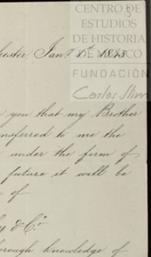 CENTRO DE
ESTUDIOS
DE HISTORIA
DE MÉXICO
FUNDACIÓN
Carlos Slim
Jany 1st 18
you that my Brother
nsferred to me the
under the form of
future it will be
of
y & Co
orough knowledge of